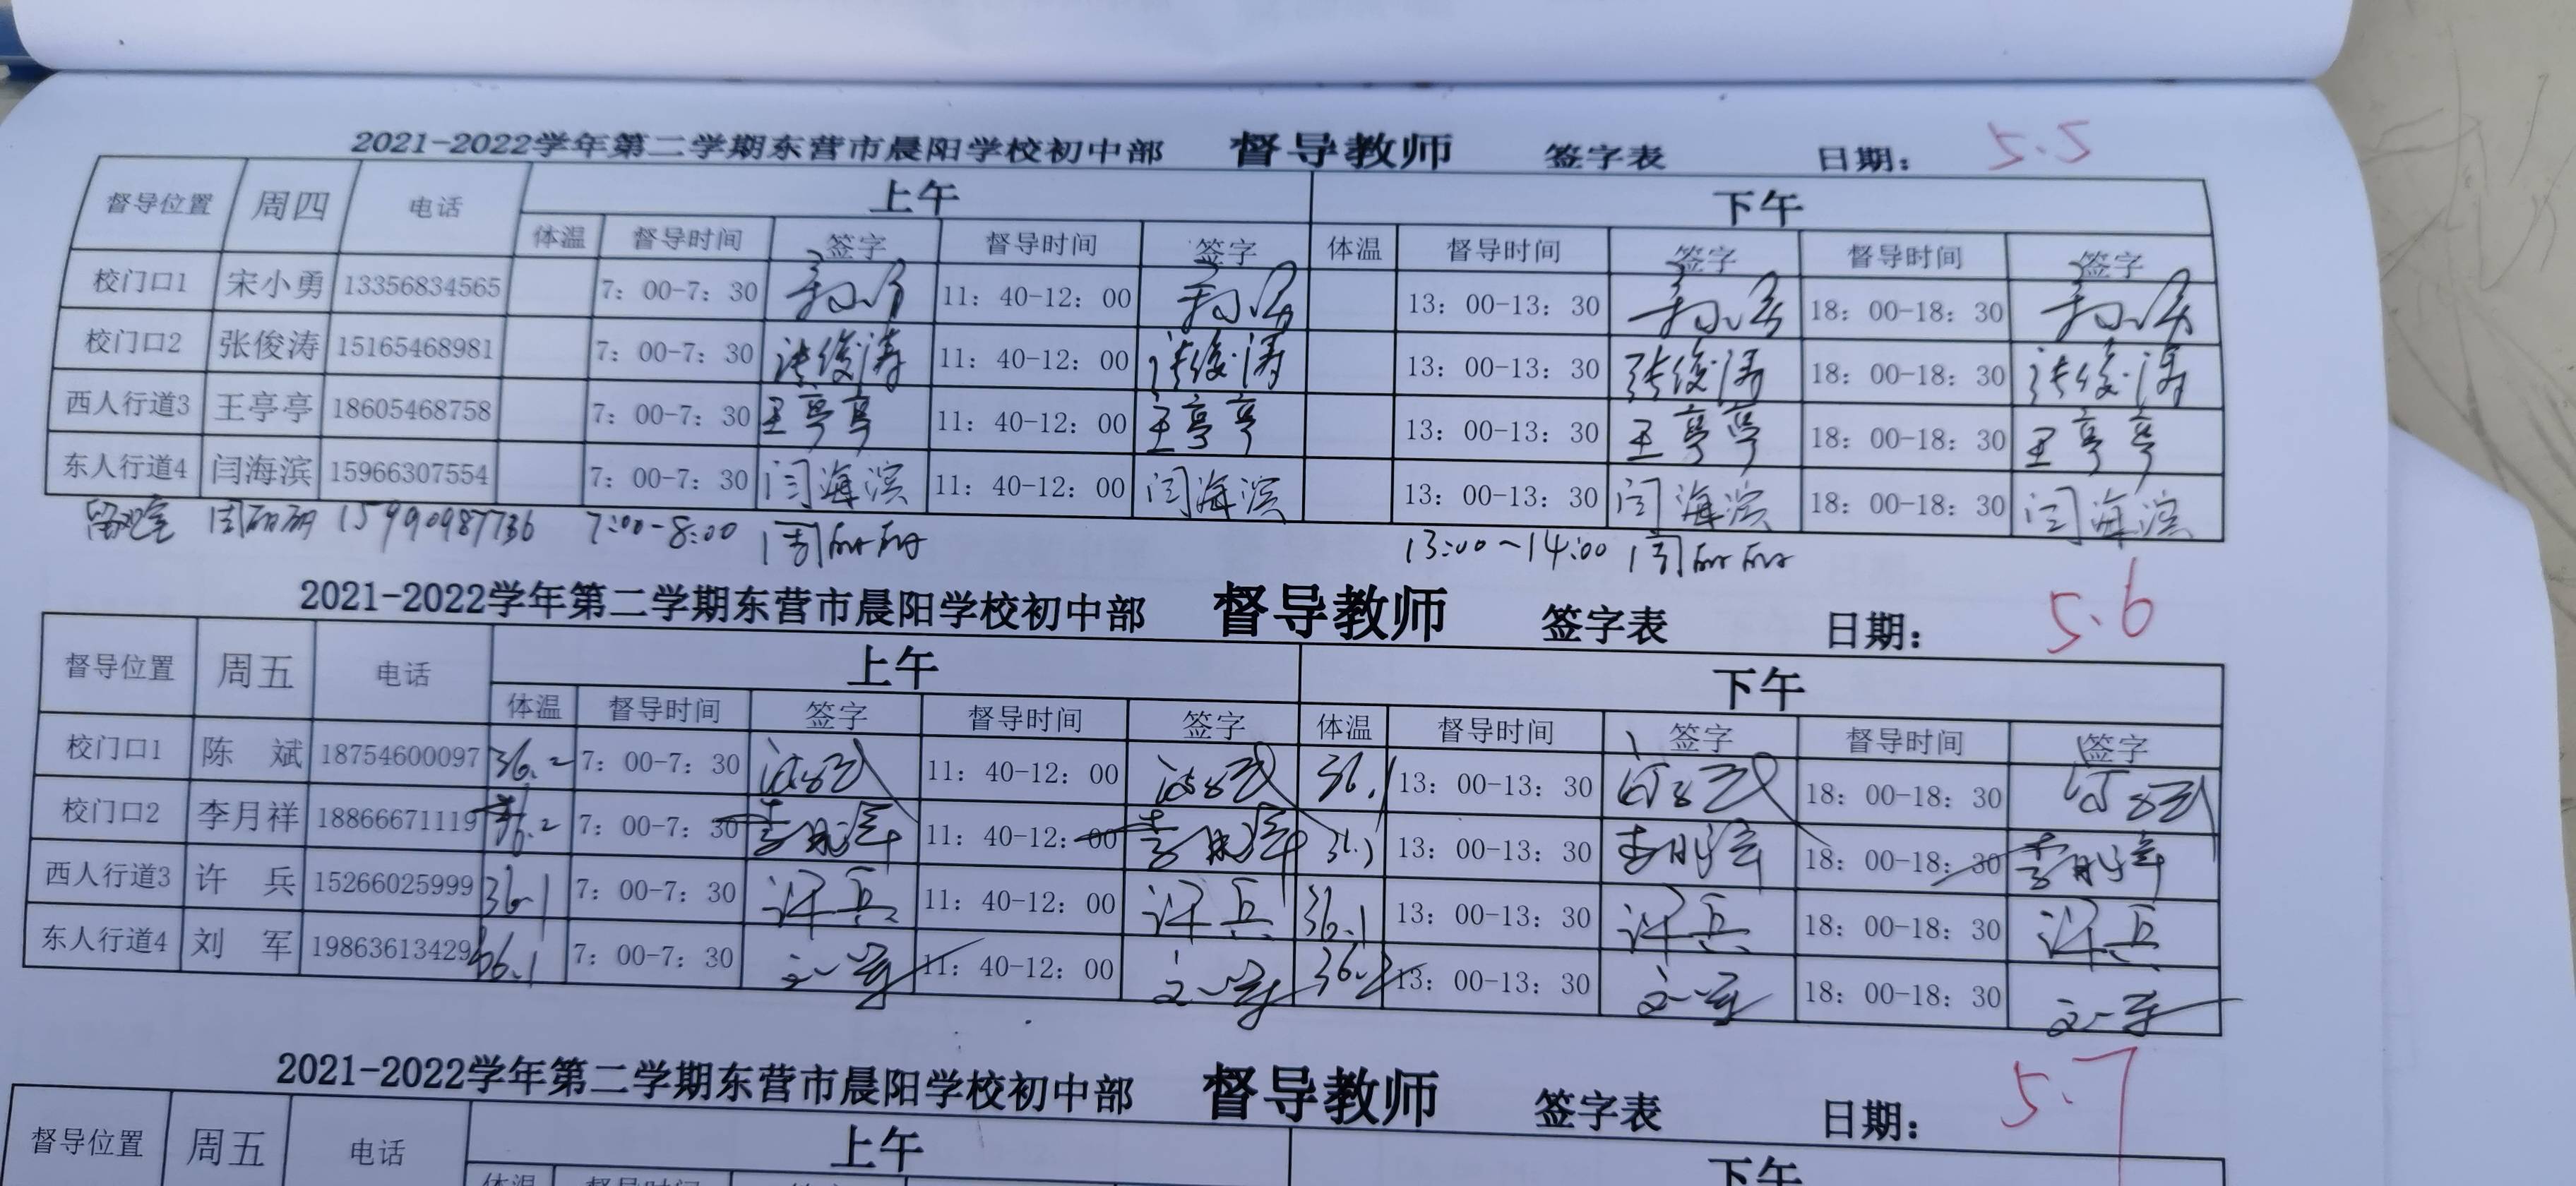 2021-2022学年第二学期东营市晨阳学校初中部 督导教师 签字表 日期: 5.5
督导位置 周四 电话 上午 下午
体温 督导时间 签字 督导时间 签字 体温 督导时间 签字 督导时间 签字
校门口1 宋小勇 13356834565 7: 00-7: 30 11: 40-12: 00 13: 00-13: 30 18: 00-18: 30
校门口2 张俊涛 15165468981 7: 00-7: 30 张俊涛 11: 40-12: 00 张俊涛 13: 00-13: 30 张俊涛 18: 00-18: 30 张俊涛
西人行道3 王亭亭 18605468758 7: 00-7: 30 王亭亭 11: 40-12: 00 王亭亭 13: 00-13: 30 王亭亭 18: 00-18: 30 王亭亭
东人行道4 闫海滨 15966307554 7: 00-7: 30 闫海滨 11: 40-12: 00 闫海滨 13: 00-13: 30 闫海滨 18: 00-18: 30 闫海滨
留观室 周丽丽 15990987736 7:00-8:00 周丽丽 13:00~14:00 周丽丽
2021-2022学年第二学期东营市晨阳学校初中部 督导教师 签字表 日期: 5.6
督导位置 周五 电话 上午 下午
体温 督导时间 签字 督导时间 签字 体温 督导时间 签字 督导时间 签字
校门口1 陈 斌 18754600097 36.2 7: 00-7: 30 11: 40-12: 00 36.1 13: 00-13: 30 18: 00-18: 30
校门口2 李月祥 18866671119 36.2 7: 00-7: 30 李月祥 11: 40-12: 00 李月祥 36.1 13: 00-13: 30 李月祥 18: 00-18: 30 李月祥
西人行道3 许 兵 15266025999 36.1 7: 00-7: 30 许兵 11: 40-12: 00 许兵 36.1 13: 00-13: 30 许兵 18: 00-18: 30 许兵
东人行道4 刘 军 19863613429 36.1 7: 00-7: 30 刘军 11: 40-12: 00 刘军 36.2 13: 00-13: 30 刘军 18: 00-18: 30 刘军
2021-2022学年第二学期东营市晨阳学校初中部 督导教师 签字表 日期: 5.7
督导位置 周五 电话 上午 下午
体温 督导时间